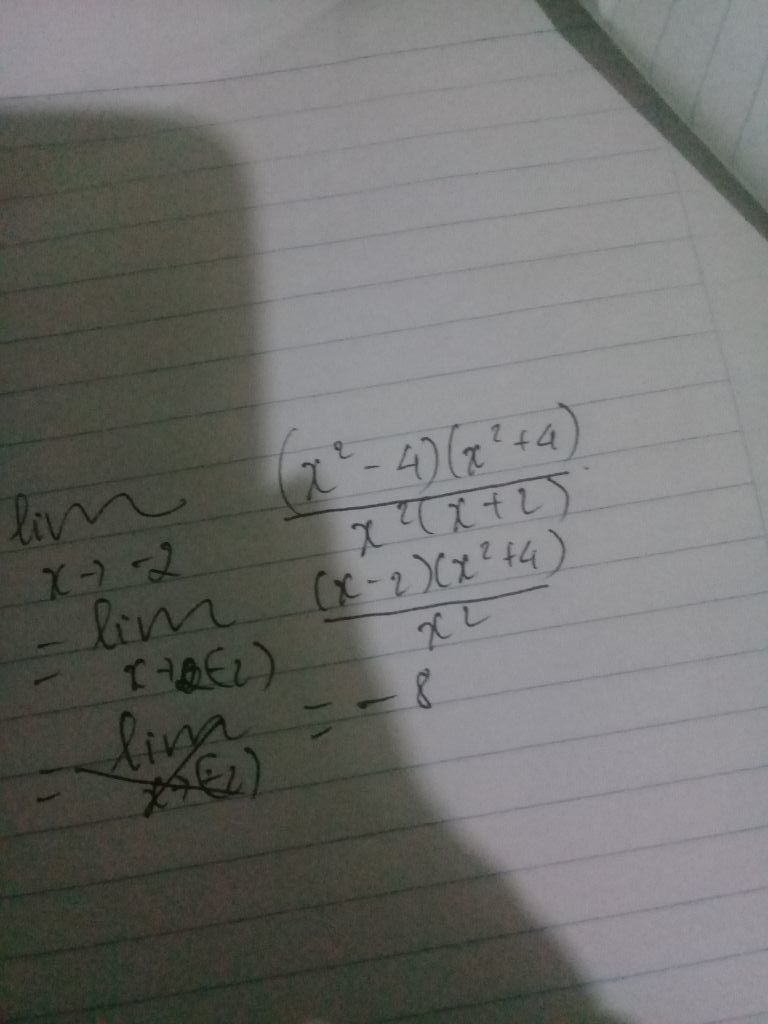 lim (x² - 4)(x² + 4)
x → -2 x²(x + 2)
= lim (x - 2)(x² + 4)
x → (-2) x²
= lim = - 8
x → (-2)